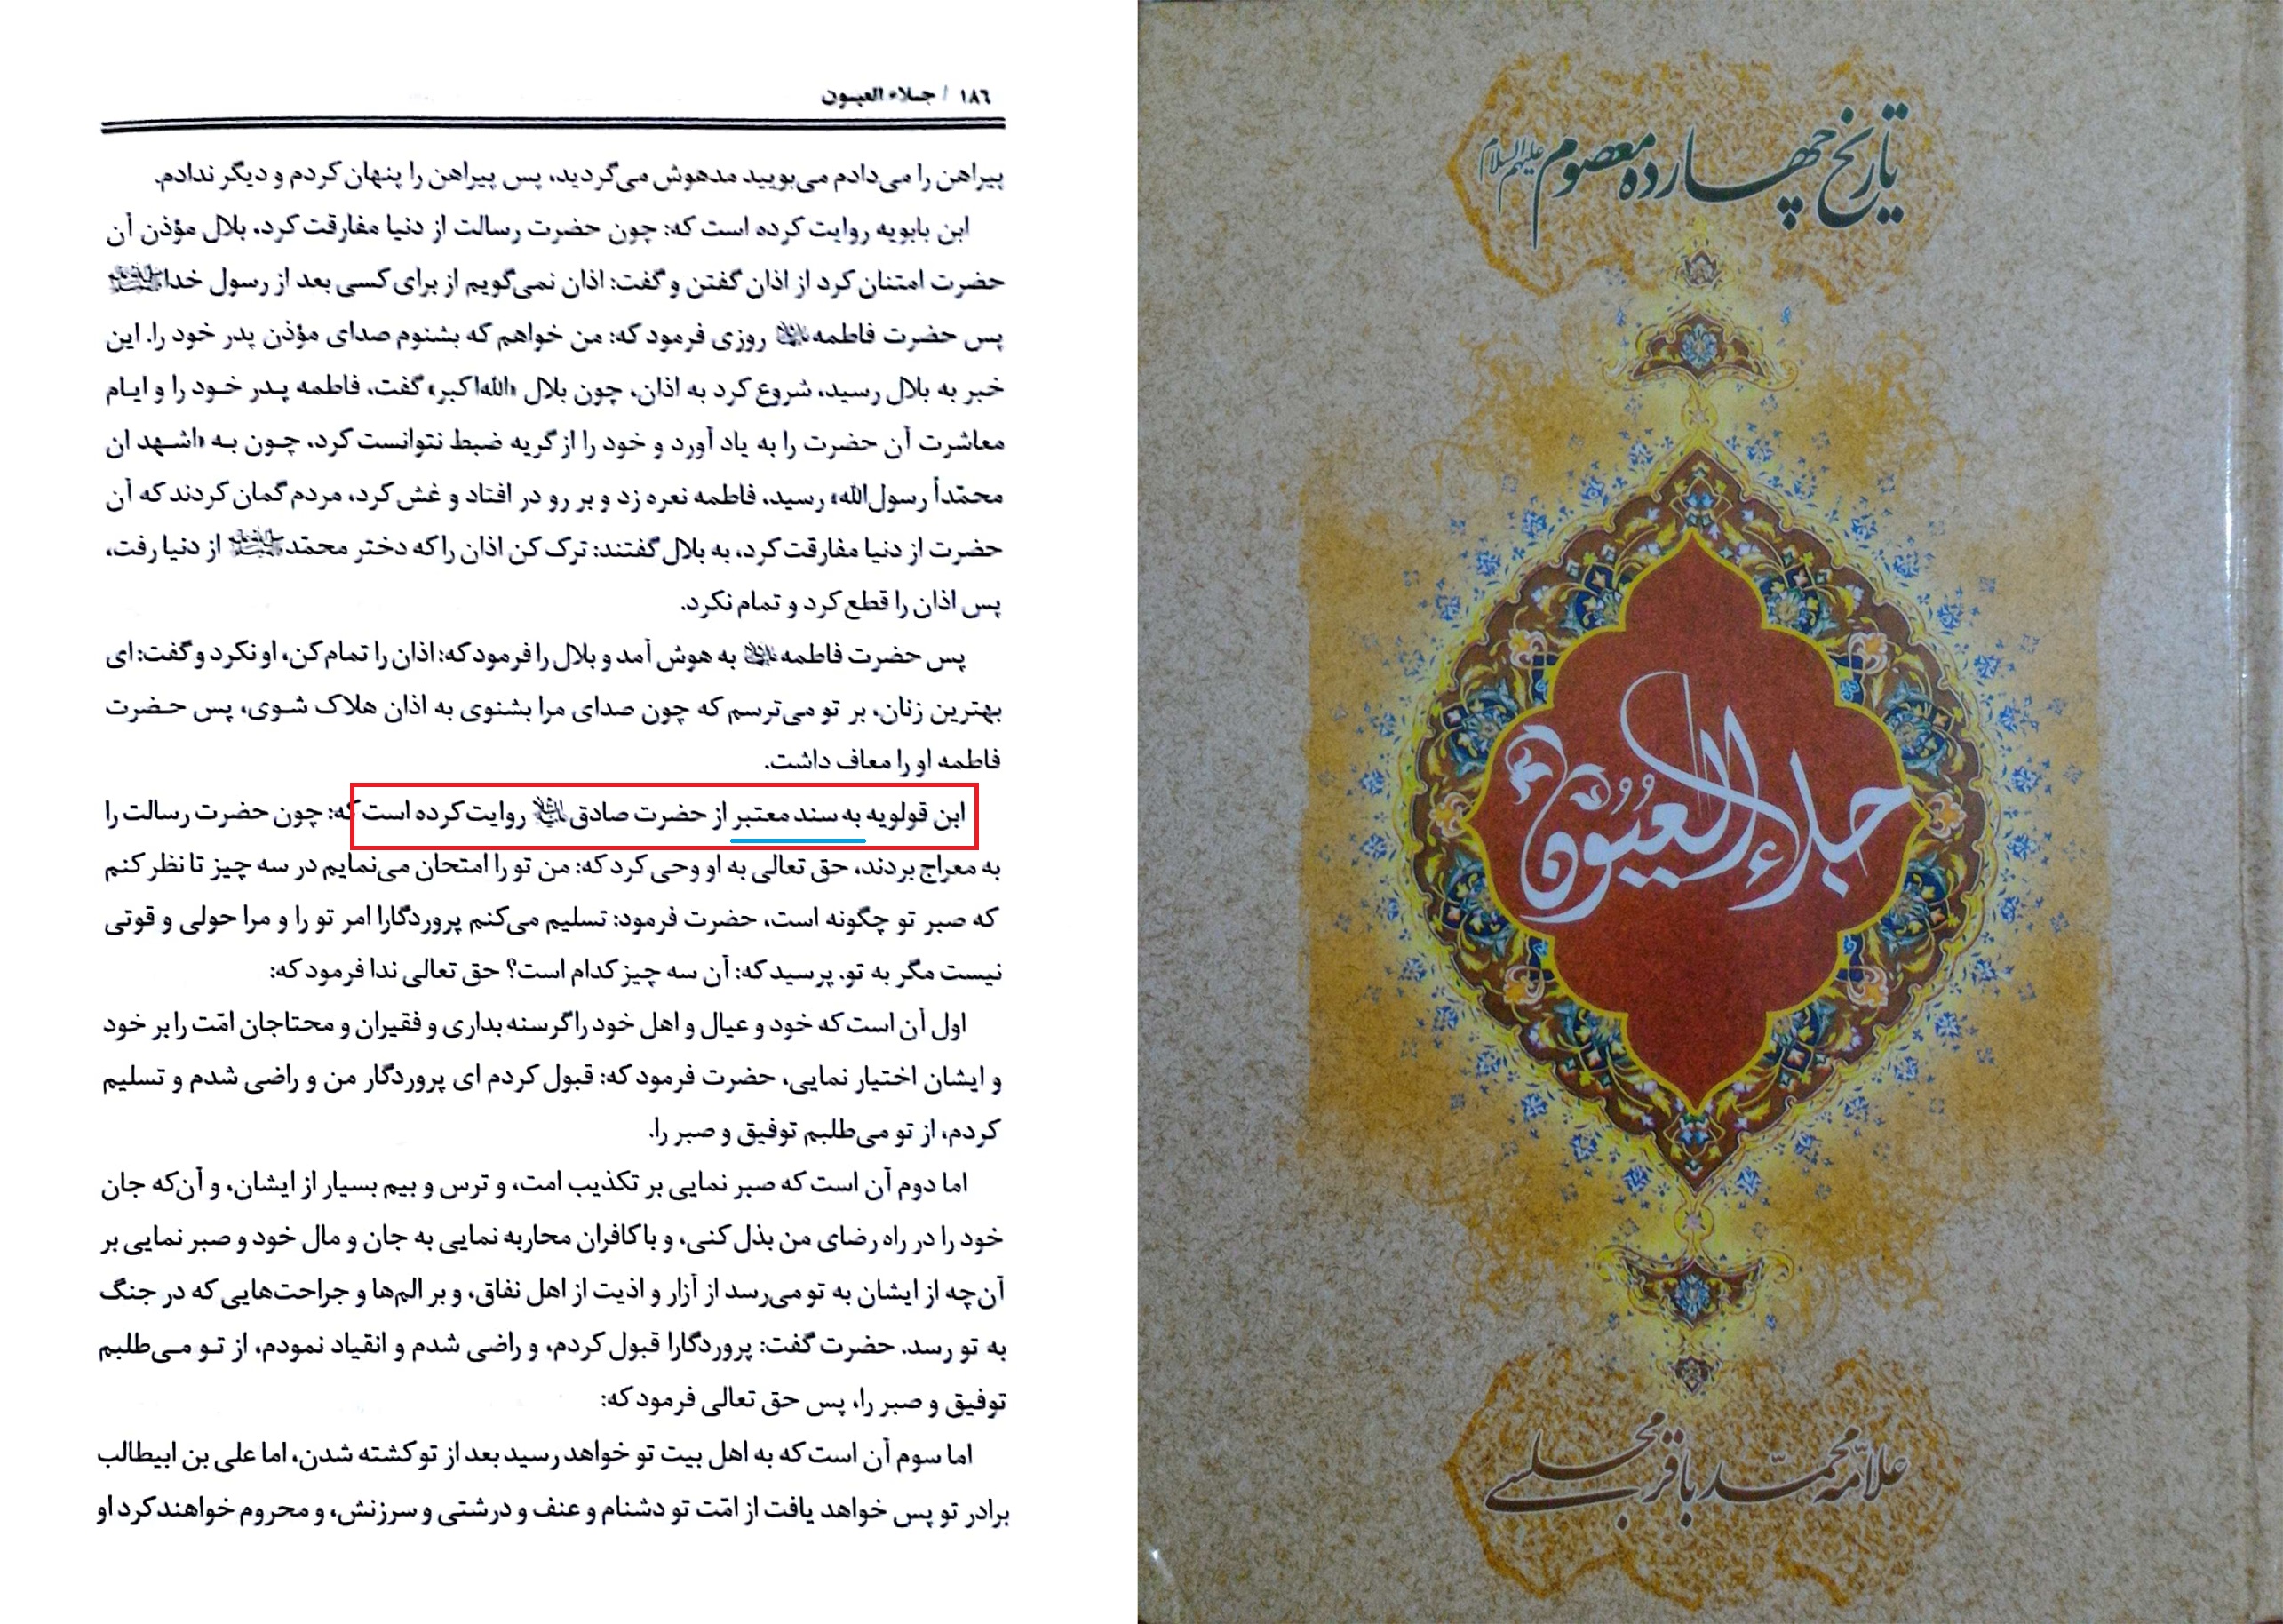 ۱۸۶ / جلاء العیون
پیراهن را می‌دادم می‌بویید مدهوش می‌گردید، پس پیراهن را پنهان کردم و دیگر ندادم.
ابن بابویه روایت کرده است که: چون حضرت رسالت از دنیا مفارقت کرد، بلال مؤذن آن
حضرت امتنان کرد از اذان گفتن و گفت: اذان نمی‌گویم از برای کسی بعد از رسول خدا
پس حضرت فاطمه روزی فرمود که: من خواهم که بشنوم صدای مؤذن پدر خود را. این
خبر به بلال رسید، شروع کرد به اذان، چون بلال «الله‌اکبر» گفت، فاطمه پدر خود را و ایام
معاشرت آن حضرت را به یاد آورد و خود را از گریه ضبط نتوانست کرد، چون به «اشهد ان
محمّداً رسول‌الله» رسید، فاطمه نعره زد و بر رو در افتاد و غش کرد، مردم گمان کردند که آن
حضرت از دنیا مفارقت کرد، به بلال گفتند: ترک کن اذان را که دختر محمّد از دنیا رفت،
پس اذان را قطع کرد و تمام نکرد.
پس حضرت فاطمه به هوش آمد و بلال را فرمود که: اذان را تمام کن، او نکرد و گفت: ای
بهترین زنان، بر تو می‌ترسم که چون صدای مرا بشنوی به اذان هلاک شوی، پس حضرت
فاطمه او را معاف داشت.
ابن قولویه به سند معتبر از حضرت صادق روایت کرده است که: چون حضرت رسالت را
به معراج بردند، حق تعالی به او وحی کرد که: من تو را امتحان می‌نمایم در سه چیز تا نظر کنم
که صبر تو چگونه است، حضرت فرمود: تسلیم می‌کنم پروردگارا امر تو را و مرا حولی و قوتی
نیست مگر به تو. پرسید که: آن سه چیز کدام است؟ حق تعالی ندا فرمود که:
اول آن است که خود و عیال و اهل خود را گرسنه بداری و فقیران و محتاجان امّت را بر خود
و ایشان اختیار نمایی، حضرت فرمود که: قبول کردم ای پروردگار من و راضی شدم و تسلیم
کردم، از تو می‌طلبم توفیق و صبر را.
اما دوم آن است که صبر نمایی بر تکذیب امت، و ترس و بیم بسیار از ایشان، و آن‌که جان
خود را در راه رضای من بذل کنی، و با کافران محاربه نمایی به جان و مال خود و صبر نمایی بر
آن‌چه از ایشان به تو می‌رسد از آزار و اذیت از اهل نفاق، و بر الم‌ها و جراحت‌هایی که در جنگ
به تو رسد. حضرت گفت: پروردگارا قبول کردم، و راضی شدم و انقیاد نمودم، از تو می‌طلبم
توفیق و صبر را، پس حق تعالی فرمود که:
اما سوم آن است که به اهل بیت تو خواهد رسید بعد از تو کشته شدن، اما علی بن ابیطالب
برادر تو پس خواهد یافت از امّت تو دشنام و عنف و درشتی و سرزنش، و محروم خواهند کرد او
تاریخ چهارده معصوم علیهم السلام
جلاء العیون
علاّمه محمّد باقر مجلسی